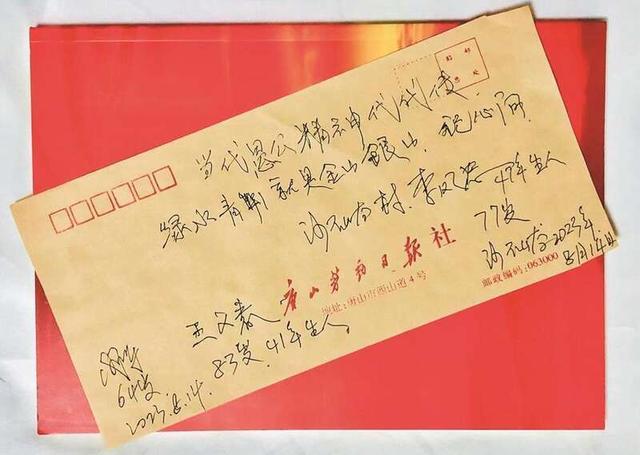 贴 邮
票 处
当代愚公精神代代传
绿水青山就是金山银山
沙石峪村 李凤忠 47年生人
77岁
沙石峪2023年
8月14日
唐山劳动日报社
地址:唐山市西山道4号
邮政编码:063000
王文春
83岁.41年生人
64岁
2023.8.14.